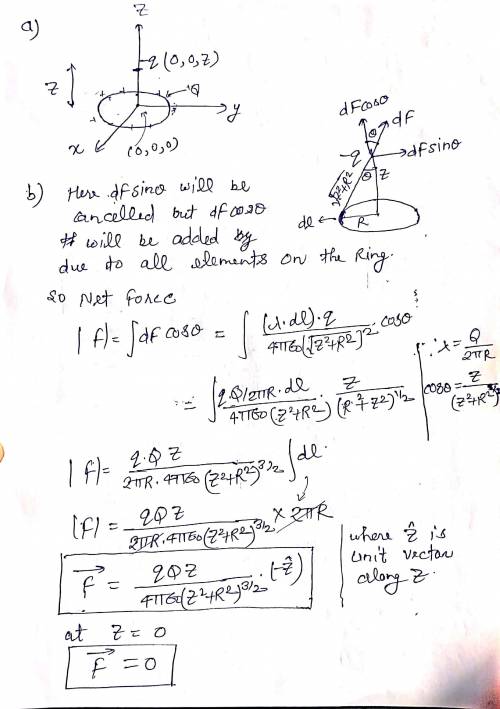 a)
Z
q (0,0,z)
Q
Z
y
x
(0,0,0)
dF cosθ
θ
dF
-q
dF sinθ
θ
Z
√Z²+R²
dl
R
b) Here dF sinθ will be
cancelled but dF cosθ
will be added by
due to all elements on the Ring.
So Net force
|F| = ∫dF cosθ = ∫ (λ·dl)·q / 4πε₀(√Z²+R²)² · cosθ
∵ λ = Q / 2πR
= ∫ qQ/2πR · dl / 4πε₀(Z²+R²) · Z / (R²+Z²)^1/2
cosθ = Z / (Z²+R²)^1/2
|F| = q·QZ / 2πR·4πε₀(Z²+R²)^3/2 ∫dl.
|F| = qQZ / 2πR·4πε₀(Z²+R²)^3/2 × 2πR
F⃗ = qQZ / 4πε₀(Z²+R²)^3/2 · (-ẑ)
where ẑ is
unit vector
along Z.
at Z = 0
F⃗ = 0